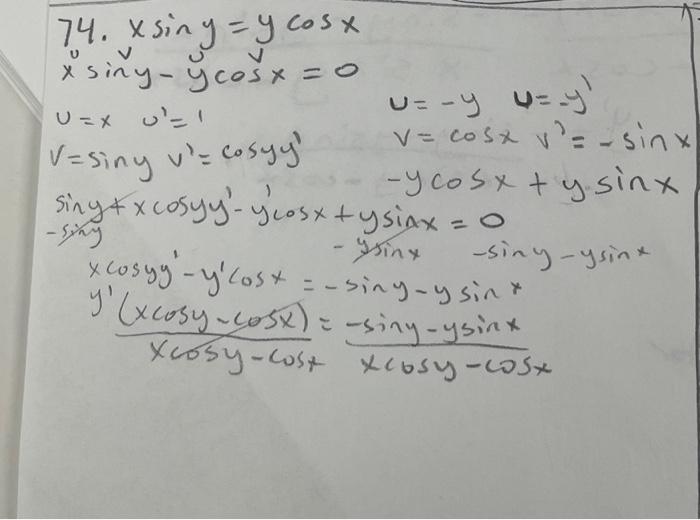 74. x sin y = y cos x
u v u v
x sin y - y cos x = 0
u = x u' = 1
v = sin y v' = cos y y'
u = -y u = -y'
v = cos x v' = - sin x
-y cos x + y sin x
sin y + x cos y y' - y' cos x + y sin x = 0
- sin y - y sin x - sin y - y sin x
x cos y y' - y' cos x = - sin y - y sin x
y' (x cos y - cos x) = - sin y - y sin x
x cos y - cos x x cos y - cos x